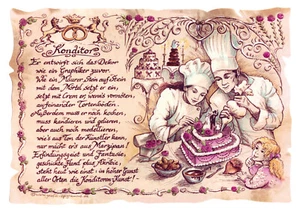 Konditor
Er entwirft sich das Dekor
wie ein Graphiker zuvor.
Wie ein Maurer Stein auf Stein
mit dem Mörtel setzt er ein,
setzt mit Crem er, wenn's vonnöten,
aufeinander Tortenböden.
Außerdem muss er noch kochen,
muss kandieren und gelieren,
aber auch noch modellieren,
wie's aus Ton der Künstler kann,
nur macht er's aus Marzipan.
Erfindungsgeist und Fantasie,
geschickte Hand plus Akribie,
steht heut wie einst in hoher Gunst
aller Orten die Konditoren-Kunst!